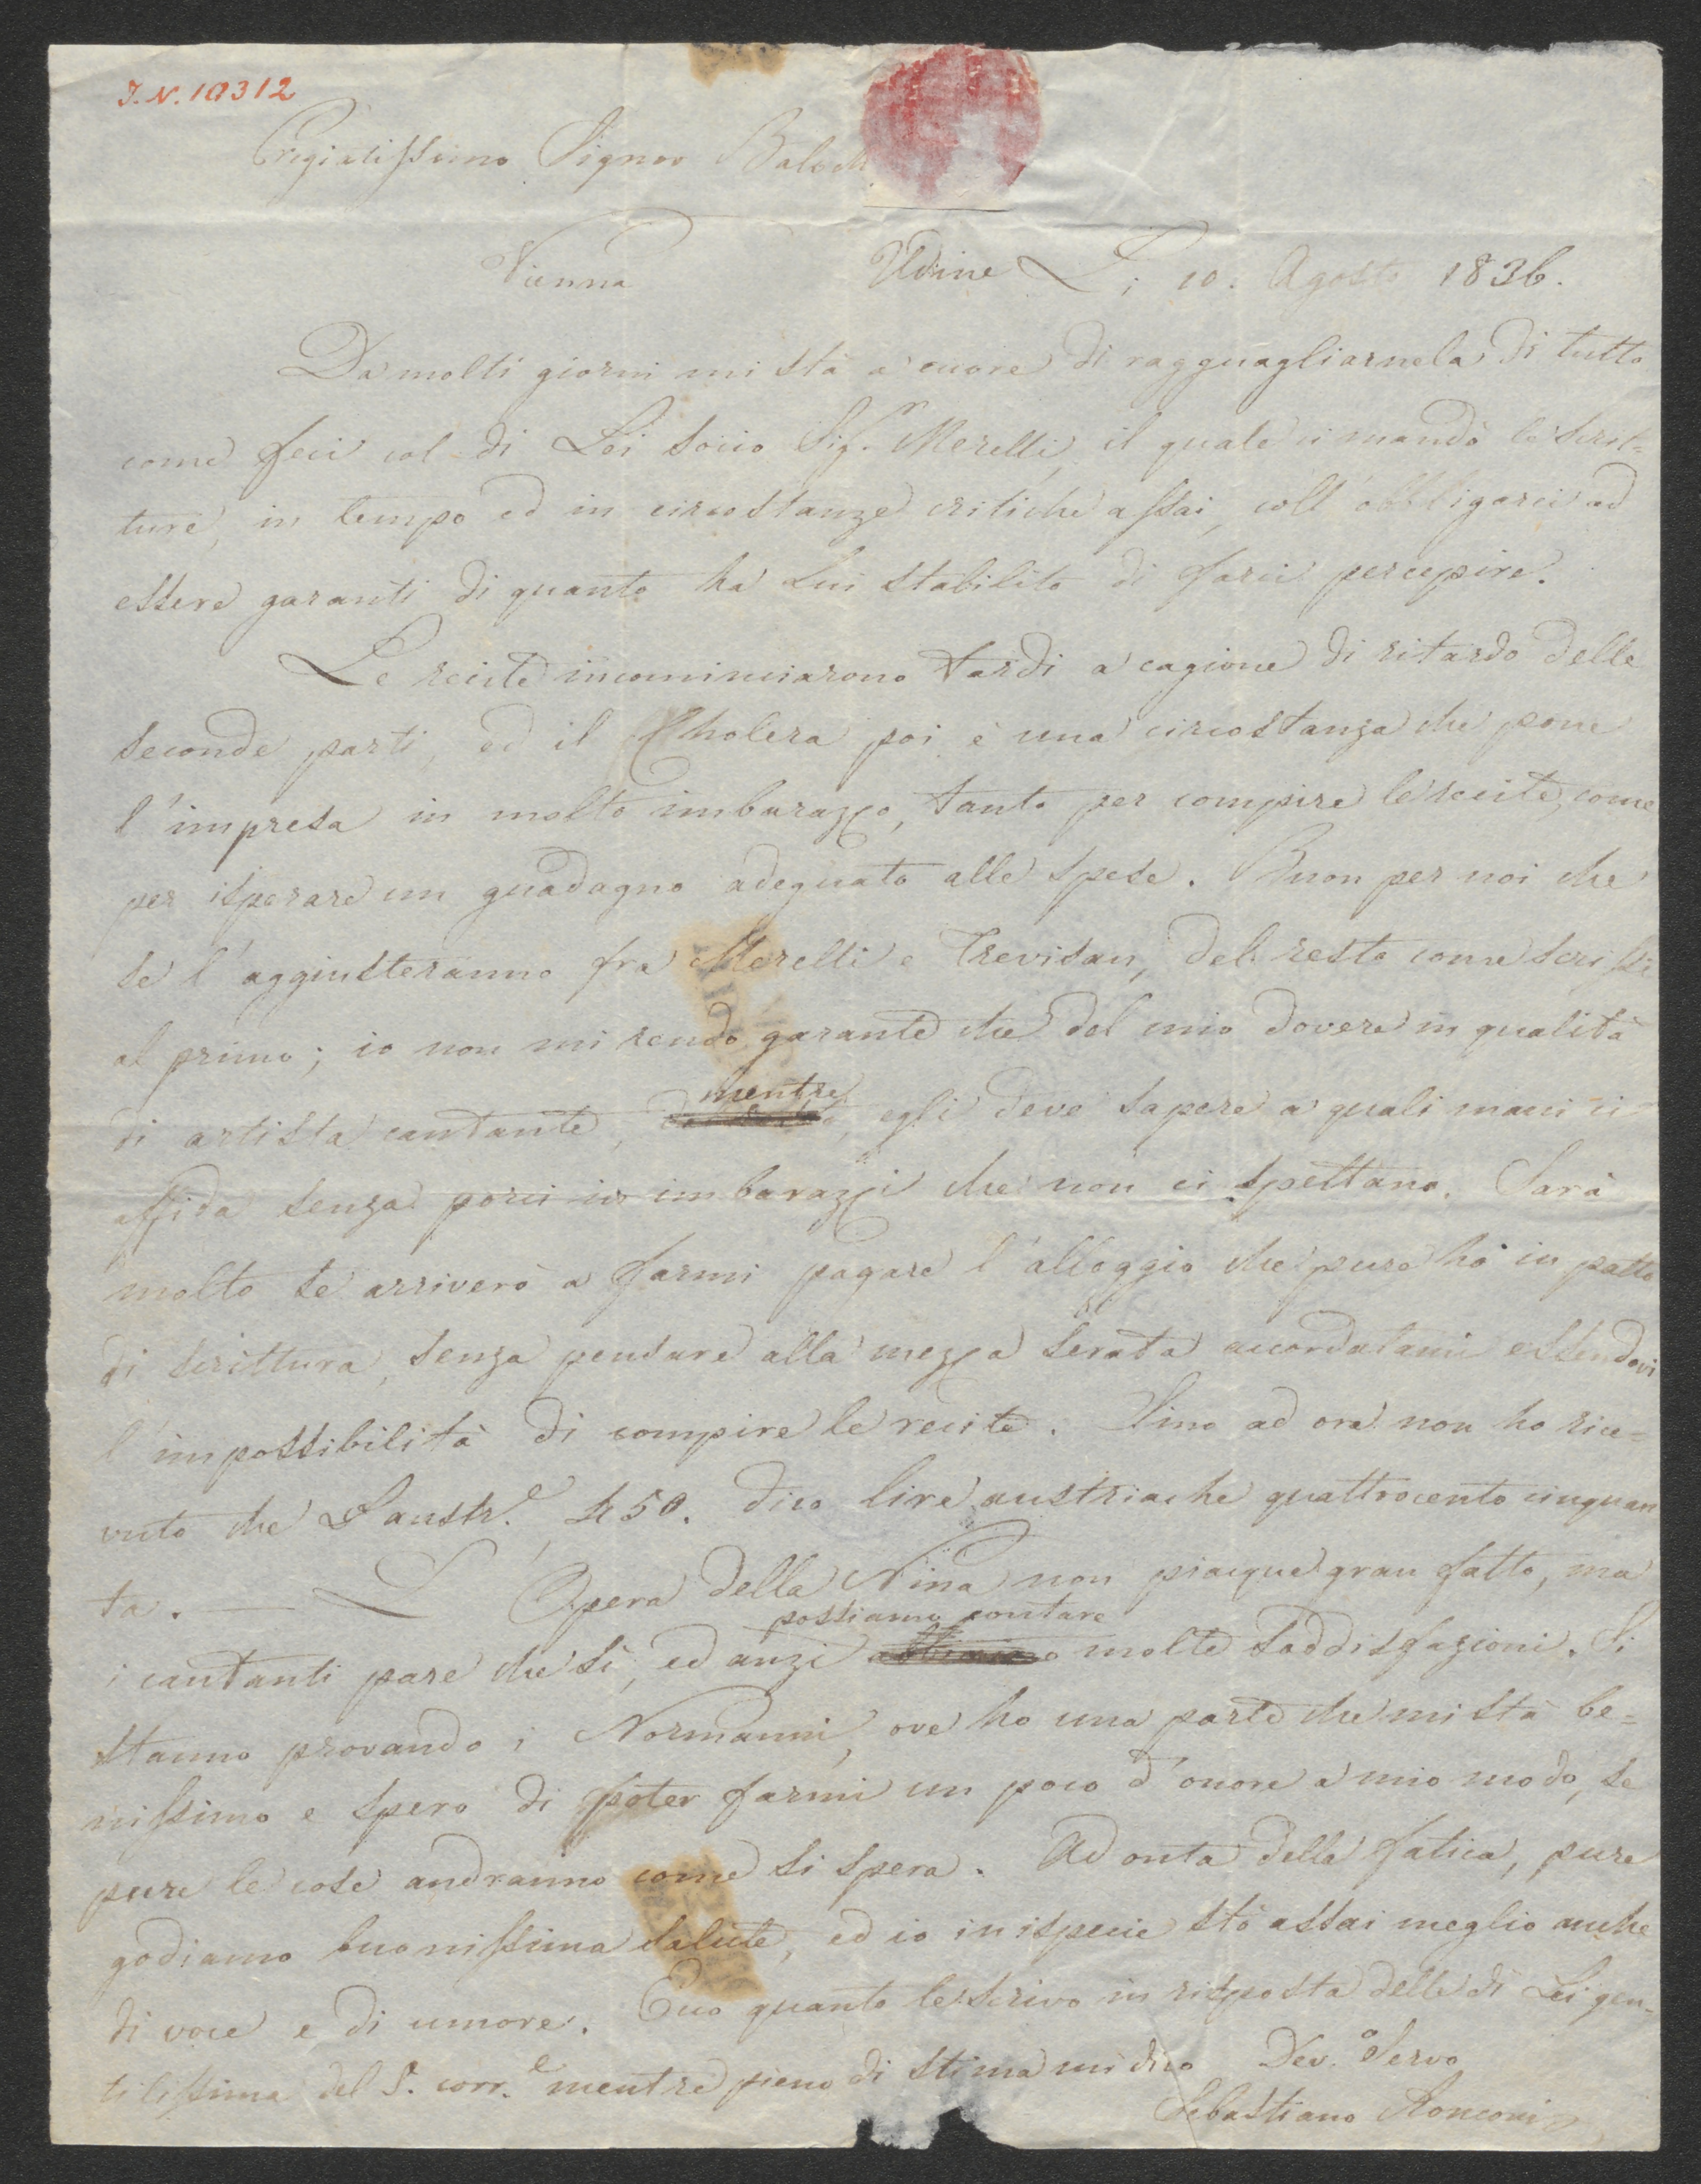 J.N. 10312
Pregiatissimo Signor Baloch
Vienna Udine Li 10. Agosto 1836.
Da molti giorni mi stà a cuore di ragguagliarnela di tutto
come feci col di Lei socio Sig.r Merelli, il quale ci mandò le scrit=
ture, in tempo ed in circostanze critiche assai, coll'obbligarci ad
essere garanti di quanto ha Lui stabilito di farci percepire.
Le recite incominciarono tardi a cagione di ritardo delle
seconde parti, ed il Cholera poi è una circostanza che pone
l'impresa in molto imbarazzo, tanto per compire le recite, come
per isperare un guadagno adeguato alle spese. Buon per noi che
se l'aggiusteranno fra Merelli e Trevisan, del resto come scrissi
al primo; io non mi rendo garante che del mio dovere in qualità
di artista cantante, mentre, egli deve sapere a quali mani ci
affida senza porci in imbarazzi che non ci spettano. Sarà
molto se arriverò a farmi pagare l'alloggio che pure hò in patto
di scrittura, senza pensare alla mezza serata accordatami essendovi
l'impossibilità di compire le recite. Sino ad ora non ho rice=
vuto che L austr.e 450. dico lire austriache quattrocento cinquan
ta. — L'Opera della Nina non piacque gran fatto, ma
i cantanti pare che sì, ed anzi possiamo contare molte soddisfazioni. Si
stanno provando i Normanni, ove ho una parte che mi stà be=
nissimo e spero di poter farmi un poco d'onore a mio modo, se
pure le cose andranno come si spera. Ad onta della fatica, pure
godiamo buonissima salute, ed io in ispecie stò assai meglio anche
di voce e di umore. Ecco quanto le scrivo in risposta della di Lei gen=
tilissima del 5. corr.e mentre pieno di stima mi dico Dev.o Servo
Sebastiano Ronconi